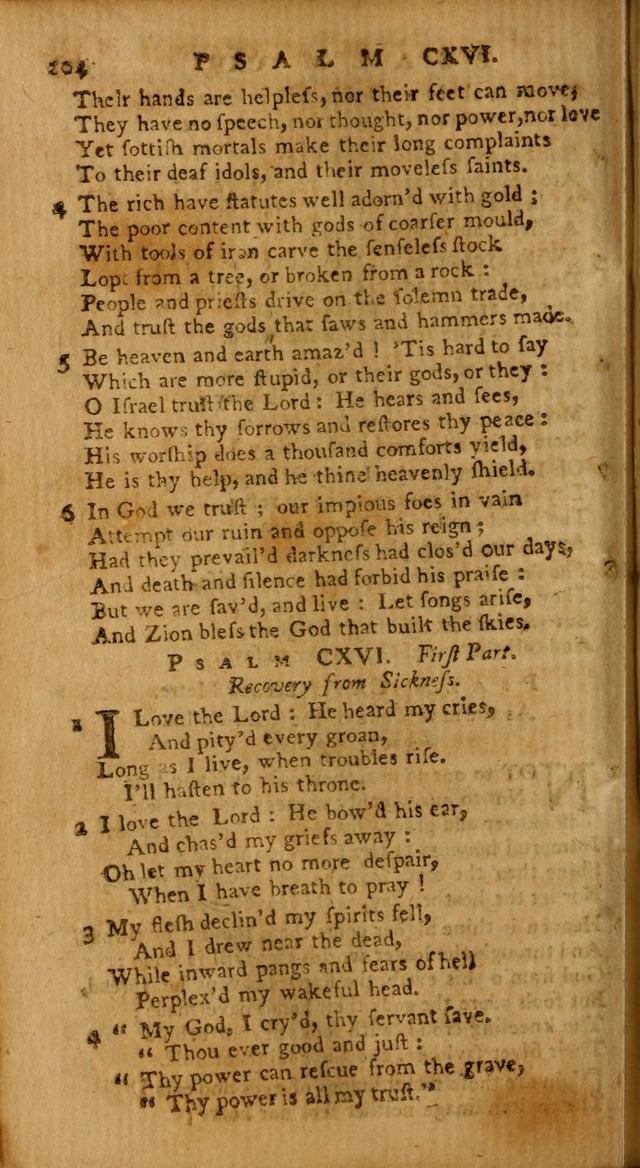 204 PSALM CXVI.
Their hands are helpleſs, nor their feet can move,
They have no ſpeech, nor thought, nor power, nor love
Yet ſottiſh mortals make their long complaints
To their deaf idols, and their moveleſs ſaints.
4 The rich have ſtatutes well adorn'd with gold ;
The poor content with gods of coarſer mould,
With tools of iron carve the ſenſeleſs ſtock
Lopt from a tree, or broken from a rock :
People and prieſts drive on the ſolemn trade,
And truſt the gods that ſaws and hammers made.
5 Be heaven and earth amaz'd ! 'Tis hard to ſay
Which are more ſtupid, or their gods, or they :
O Iſrael truſt the Lord : He hears and ſees,
He knows thy ſorrows and reſtores thy peace :
His worſhip does a thouſand comforts yield,
He is thy help, and he thine heavenly ſhield.
6 In God we truſt ; our impious foes in vain
Attempt our ruin and oppoſe his reign ;
Had they prevail'd darkneſs had clos'd our days,
And death and ſilence had forbid his praiſe :
But we are ſav'd, and live : Let ſongs ariſe,
And Zion bleſs the God that built the ſkies.
PSALM CXVI. Firſt Part.
Recovery from Sickneſs.
1 I Love the Lord : He heard my cries,
And pity'd every groan,
Long as I live, when troubles riſe.
I'll haſten to his throne.
2 I love the Lord : He bow'd his ear,
And chas'd my griefs away :
Oh let my heart no more deſpair,
When I have breath to pray !
3 My fleſh declin'd my ſpirits fell,
And I drew near the dead,
While inward pangs and fears of hell
Perplex'd my wakeful head.
4 “ My God, I cry'd, thy ſervant ſave.
“ Thou ever good and juſt :
“ Thy power can reſcue from the grave,
“ Thy power is all my truſt.”